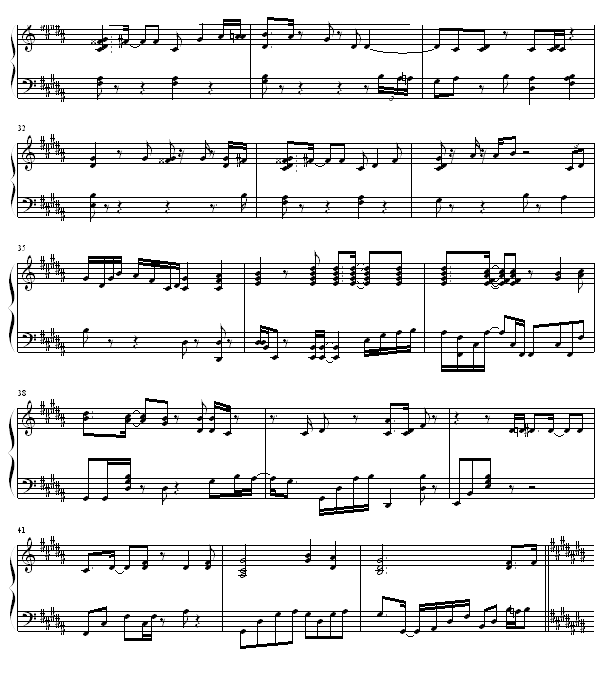 3
32
35
38
41